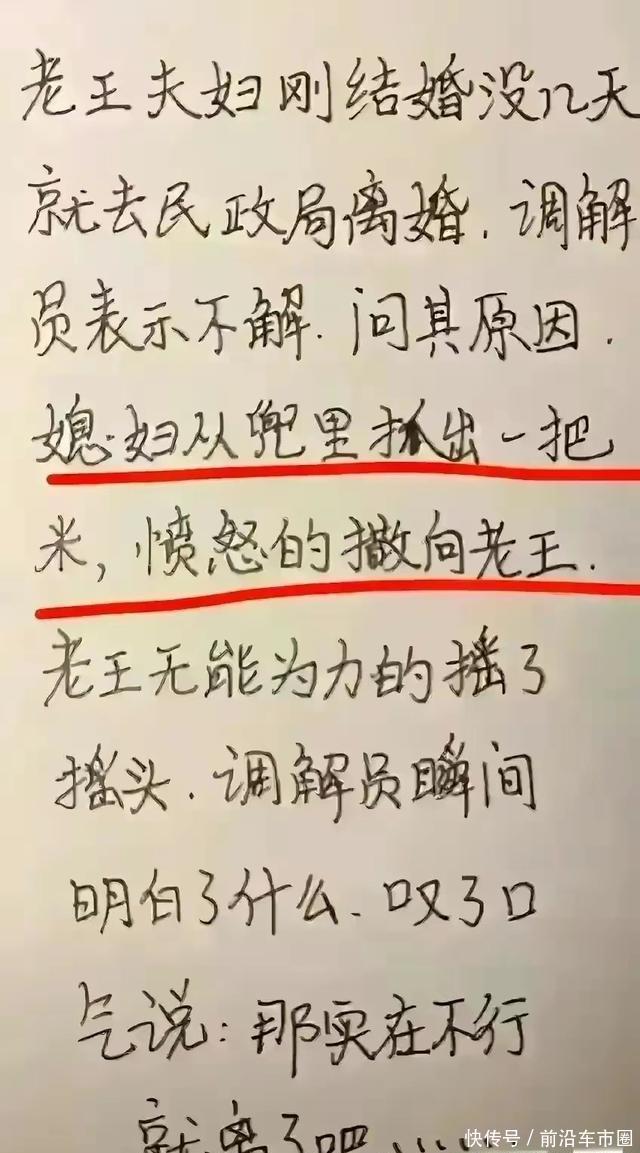 老王夫妇刚结婚没几天
就去民政局离婚.调解
员表示不解.问其原因.
媳妇从兜里抓出一把
米,愤怒的撒向老王.
老王无能为力的摇了
摇头.调解员瞬间
明白了什么.叹了口
气说:那实在不行
就离了吧......
快传号/前沿车市圈